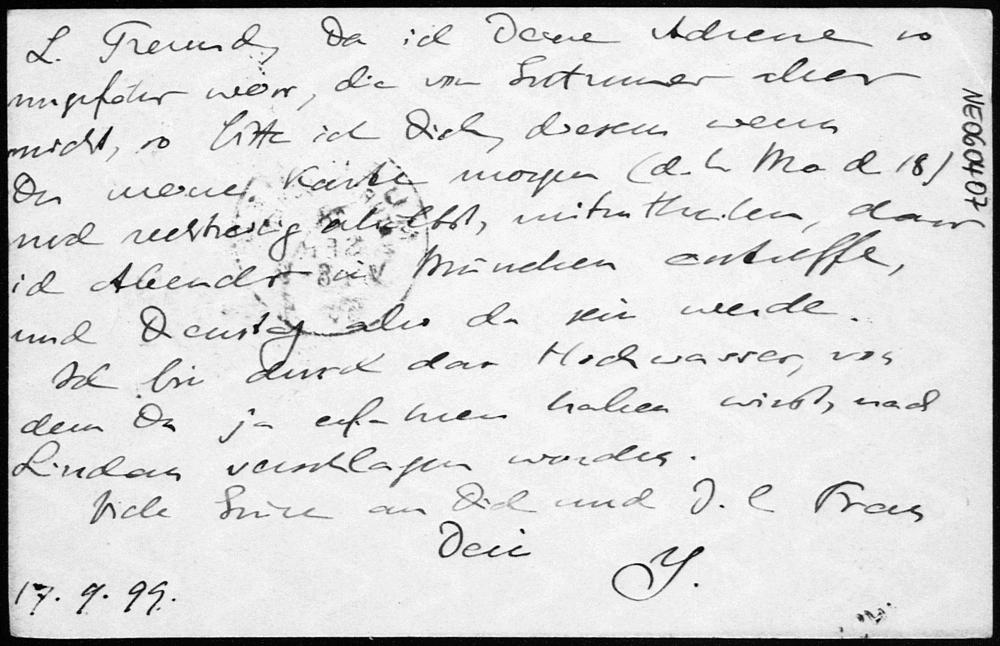 L. Freund, Da ich Deine Adresse so
ungefähr weiss, die von aber
nicht, so bitte ich Dich, diesem wenn
Du meine Karte morgen (d. h. Mo d 18)
und rechtzeitig erhältst, mitzutheilen, dass
ich Abends in München eintreffe,
und Dienstag also da sein werde.
Ich bin durch das Hochwasser, von
dem Du ja erfahren haben wirst, nach
Lindau verschlagen worden.
Viele Grüsse an Dich und D. l. Frau
Dein
Y.
17. 9. 99.
NE060407